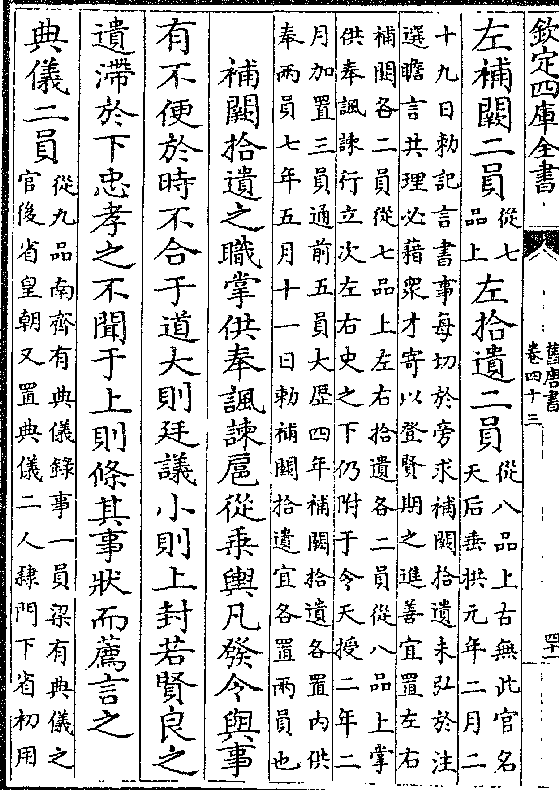 欽定四庫全書
舊唐書
卷四十三
四十一
左補闕二員從七品上左拾遺二員從八品上古無此官名
天后垂拱元年二月二
十九日勅記言書事每切於旁求補闕拾遺未弘於注
選瞻言共理必藉衆才寄以登賢期之進善宜置左右
補闕各二員從七品上左右拾遺各二員從八品上掌
供奉諷諫行立次左右史之下仍附于令天授二年二
月加置三員通前五員大歴四年補闕拾遺各置內供
奉兩員七年五月十一日勅補闕拾遺宜各置兩員也
補闕拾遺之職掌供奉諷諫扈從乗輿凡發令與事
有不便於時不合于道大則廷議小則上封若賢良之
遺滯於下忠孝之不聞于上則條其事狀而薦言之
典儀二員從九品南齊有典儀錄事一員梁有典儀之
官後省皇朝又置典儀二人隸門下省初用